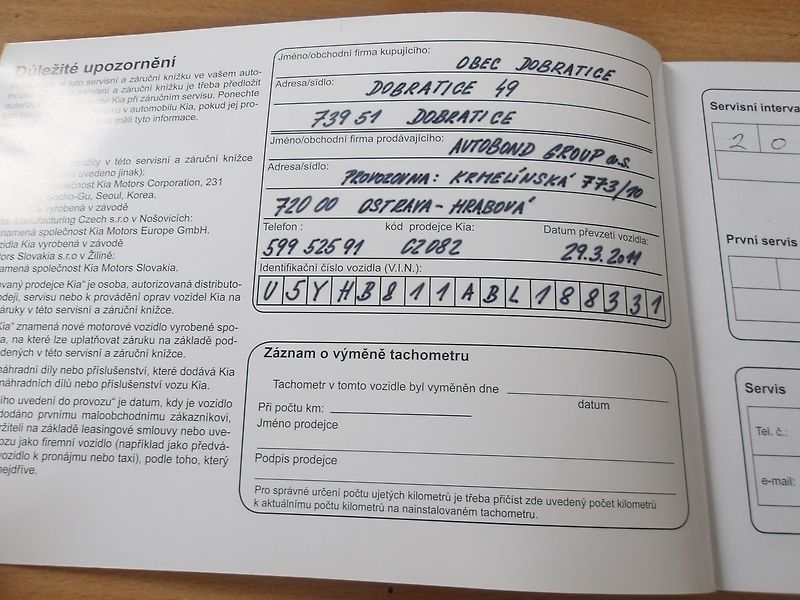 Důležité upozornění
toto servisní a záruční knížku ve vašem auto-
servisní a záruční knížku je třeba předložit
Kia při záručním servisu. Ponechte
v automobilu Kia, pokud jej pro-
měli tyto informace.
použity v této servisní a záruční knížce
uvedeno jinak):
společnost Kia Motors Corporation, 231
Seoul, Korea.
vyrobená v závodě
Manufacturing Czech s.r.o v Nošovicích:
znamená společnost Kia Motors Europe GmbH.
vozidla Kia vyrobená v závodě
Motors Slovakia s.r.o v Žilině:
znamená společnost Kia Motors Slovakia.
prodejce Kia“ je osoba, autorizovaná distributo-
prodeji, servisu nebo k provádění oprav vozidel Kia na
záruky v této servisní a záruční knížce.
Kia“ znamená nové motorové vozidlo vyrobené spo-
na, na které lze uplatňovat záruku na základě pod-
uvedených v této servisní a záruční knížce.
náhradní díly nebo příslušenství, které dodává Kia
náhradních dílů nebo příslušenství vozu Kia.
uvedení do provozu“ je datum, kdy je vozidlo
dodáno prvnímu maloobchodnímu zákazníkovi,
držiteli na základě leasingové smlouvy nebo uve-
jako firemní vozidlo (například jako předvá-
vozidlo k pronájmu nebo taxi), podle toho, který
nejdříve.
Jméno/obchodní firma kupujícího:
OBEC DOBRATICE
Adresa/sídlo:
DOBRATICE 49
739 51 DOBRATICE
Jméno/obchodní firma prodávajícího:
AUTOBOND GROUP a.s.
Adresa/sídlo:
PROVOZOVNA: KRMELÍNSKÁ 773/10
720 00 OSTRAVA-HRABOVÁ
Telefon : kód prodejce Kia: Datum převzetí vozidla:
599 525 91 CZ082 29.3.2011
Identifikační číslo vozidla (V.I.N.):
U 5 Y H B 8 1 1 A B L 1 8 8 3 3 1
Záznam o výměně tachometru
Tachometr v tomto vozidle byl vyměněn dne
datum
Při počtu km:
Jméno prodejce
Podpis prodejce
Pro správné určení počtu ujetých kilometrů je třeba přičíst zde uvedený počet kilometrů
k aktuálnímu počtu kilometrů na nainstalovaném tachometru.
Servisní interva
2 0
První servis
Servis
Tel. č.:
e-mail: